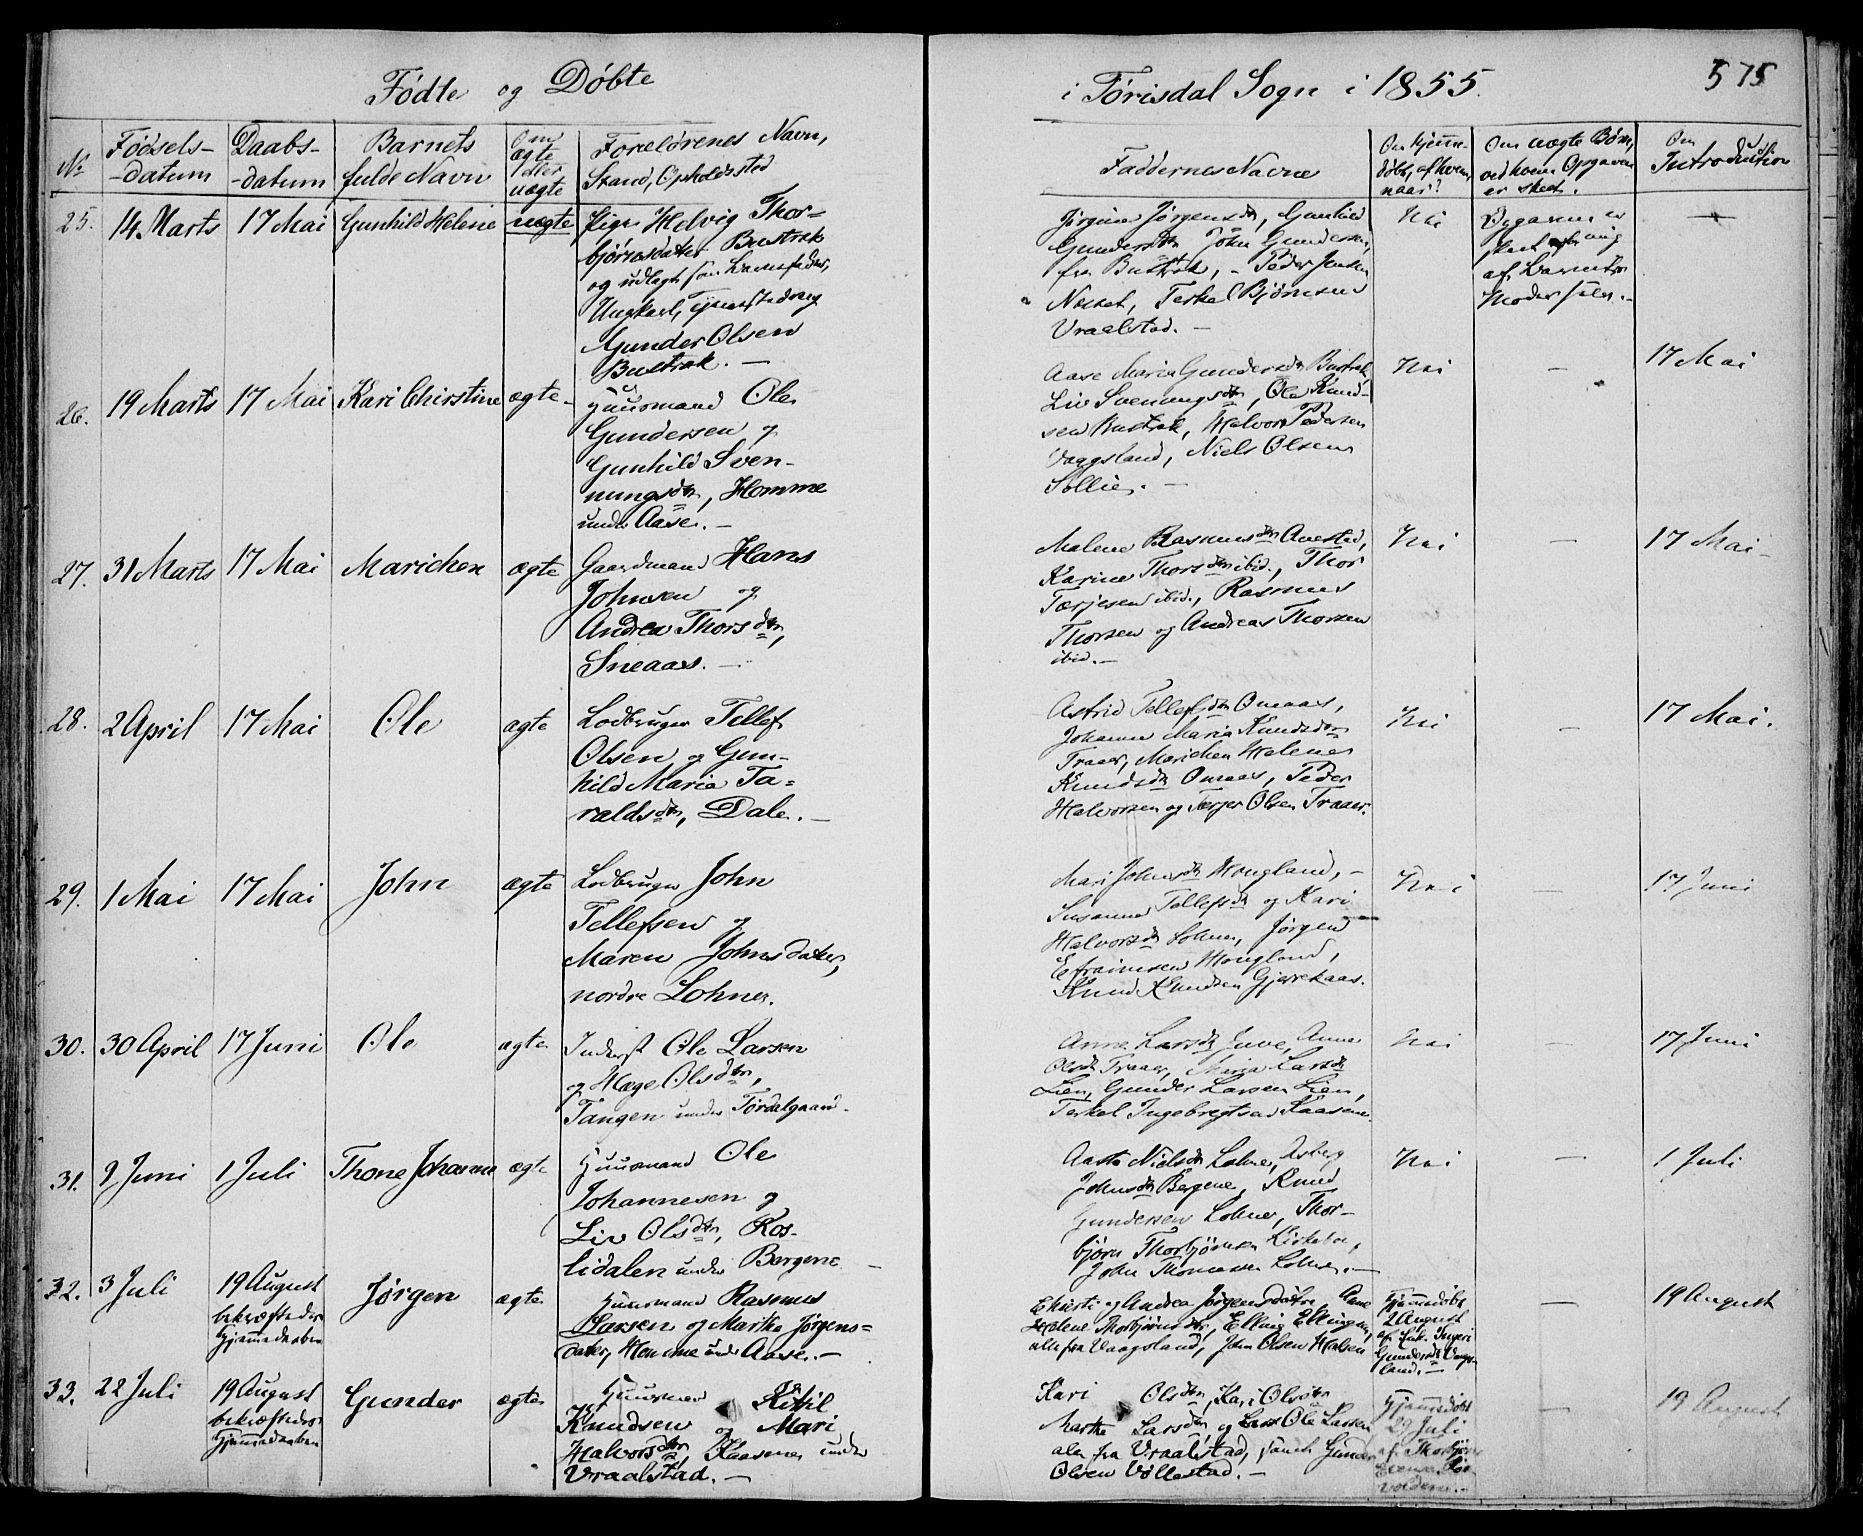 Fødte og Døbte
i Tørisdal Sogn i 1855.
575
No
Fødsels-
-datum
Daabs-
-datum
Barnets
fulde Navn
Om
ægte
eller
uægte
Forældrenes Navn,
Stand, Opholdssted
Faddernes Navne
Om hjemme-
døbt, af hvem,
naar?
Om uægte Børn,
ved hvem Opgaven
er skeet.
Om
Introduction
25.
14 Marts
17 Mai
Gunhild Helene
uægte
Pige Helvig Thor-
bjørnsdatter Bustrak
og udlagt som Barnefader,
Ungkarl,
Gunder Olsen
Bustrak. —
Jørgine Jørgensdtr, Gunhild
Gundersdtr John Gundersen,
fra Bustrak, - Peder Jensen
Neset, Terkel Bjørnsen
Vraalstad. —
Nei
Opgaven er
skeet
af Barnets
Moder selv. -
—
26.
19 Marts
17 Mai
Kari Chirstine
ægte
Huusmand Ole
Gundersen og
Gunhild Sven-
nungsdtr, Homme
under Aase. —
Aase Maria Gundersdtr Bustrak
Liv Svenungsdtr, Ole Knud-
sen Bustrak, Halvor Pedersen
Vaagsland, Niels Olsen
Sollie. —
Nei
—
17 Mai
27.
31 Marts
17 Mai
Marichen
ægte
Gaardmand Hans
Johnsen og
Andrea Thorsdtr,
Sneaas. —
Malene Rasmusdtr Avestad,
Karine Thorsdtr ibid., Thor
Tærjesen ibid., Rasmus
Thorsen og Andreas Thorsen
ibid. —
Nei
—
17 Mai -
28.
2 April
17 Mai
Ole
ægte
Lodbruger Tellef
Olsen og Gun-
hild Maria Ta-
raldsdtr, Dale. —
Astrid Tellefsdtr Omaas,
Johanne Maria Knudsdtr
Traaer, Marichen Helene
Knudsdtr Omaas, Peder
Halvorsen og Tærjer Olsen Traaer.
Nei
—
17 Mai.
29.
1 Mai
17 Mai
John
ægte
Lodbruger John
Tellefsen og
Maren Johnsdatter,
nordre Lohne.
Mari Johnsdtr Hougland, -
Susanne Tellefsdtr og Kari
Halvorsdtr Lohne, Jørgen
Efraimsen Hougland,
Knud Knudsen Gjerrekaas.
Nei
—
17 Juni
30.
30 April
17 Juni
Ole
ægte
Inderst Ole Larsen
og Hæge Olsdtr,
Tangen under Tørdalgaard.
Anne Larsdtr Juve, Anne
Olsdtr Traaer, Maria Larsdtr
Lien, Gunder Larsen Lien,
Terkel Ingebregtsen Kaasene
Nei
—
17 Juni
31.
2 Juni
1 Juli
Thone Johanne
ægte
Huusmand Ole
Johannesen og
Liv Olsdtr, Ros-
lidalen under Bergene —
Aaste Nielsdtr Lohne, Asberg
Johnsdtr Bergene, Knud
Gundersen Lohne, Thor-
bjørn Thorbjørnsen Kirkebø,
John Thomassen Lohne. —
Nei
—
1 Juli
32.
3 Juli
19 August
bekræftedes
Hjemmedaaben
Jørgen
ægte
Huusmand Rasmus
Larsen og Marthe Jørgens-
datter, Homme under Aase. —
Chirsti og Andrea Jørgensdøtre, Anne
Helene Thorbjørnsdtr, Elling Ellingsen,
alle fra Vaagsland, John Olsen Halsen
Hjemmedøbt
2 August
af Enk. Ingeri
Gundersdtr Vaags-
land. —
—
19 August
33.
22 Juli
19 August
bekræftedes
Hjemmedaaben
Gunder
ægte
Huusmand Kittil
Knudsen og Mari
Halvorsdtr, Kaasene under
Vraalstad. —
Kari Olsdtr, Kari Olsdtr
Marthe Larsdtr, og Ole Larsen
alle fra Vraalstad, samt Gunder
Olsen Vøllestad. —
Hjemmedøbt
29 Juli
af Thorbjørn
—
19 August